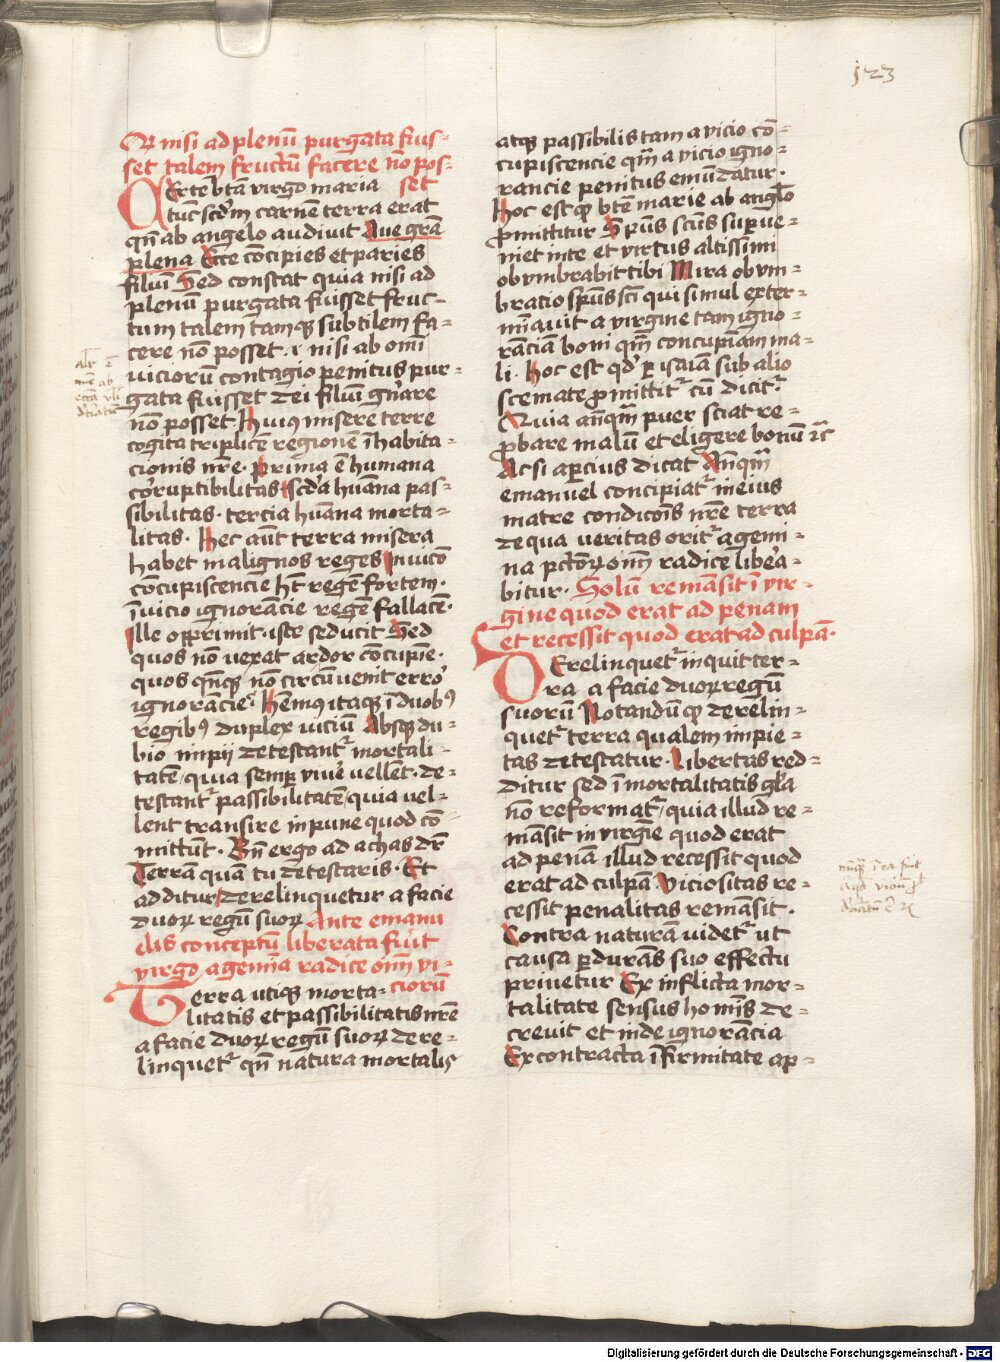 123
Qꝛ nisi ad plenū purgata fuis-
set talem fructū facere nō pos-
set
Certe btā virgo maria
tūc scd̄m carnē terra erat
qn̄ ab angelo audivit Aue grā
plena Ecce cōcipies et paries
filiū Sed constat quia nisi ad
plenū purgata fuisset fruc-
tum talem tamqȝ subtilem fa-
cere nō posset .i. nisi ab omī
viciorū contagio penitus pur-
gata fuisset dei filiū gn̄are
nō posset. Huiꝰ misere terre
cogita triplicē regionē īhabita-
cionis nr̄e. Prima ē humana
corruptibilitas scd̄a hūana pas-
sibilitas. tercia hūana morta-
litas. Hec aūt terra misera
habet malignos reges In vicō
cōcupiscencie hꝫ regē fortem.
ī vicio ignorācie regē fallacē.
Ille opprimit. iste seducit Sed
quos nō vexat ardor cōcupīe.
quos qn̄qȝ nō circūvenit erroꝛ
ignorācie. Hēmꝰ itaqȝ ī duobꝰ
regibꝰ duplex viciū Absqȝ du-
bio impii detestantᷣ mortali-
tatē/ quia semꝑ vivē vellēt. de-
testantᷣ passibilitatē quia vel-
lent transire inpune quod cō-
mittūt. Vn̄ ergo ad achas dr̄
Terram quā tu detestaris. Et
additur derelinquetur a facie
duoꝝ regū suoꝝ Ante emanu
elis conceptū liberata fuit
virgo a gemīa radice om̄ vi-
ciorū
Terra utiqȝ morta-
litatis et passibilitatis nr̄e
a facie duoꝝ regū suoꝝ dere-
linquetᷣ qn̄ natura mortalis
atqȝ passibilis tam a vicio cō-
cupiscencie qm̄ a vicio igno-
rancie penitus emūdatur.
Hoc est qꝫ btē marie ab anglō
ꝓmittitur Sp̄us scūs suꝑve-
niet in te et virtus altissimi
obvmbrabit tibi Mira obvm-
bratio sp̄us scī qui simul exter-
mīavit a virgine tam igno-
rāciā boni qm̄ concupīam ma-
li. Hoc est qd̄ ꝑ isaiam sub alio
scemate ꝓmittitᷣ cū dicitᷣ
Quia an̄qm̄ puer sciat re-
ꝓbare malū et eligere bonū ⁊c
Ac si aꝑcius dicat An̄qm̄
emanuel concipiatᷣ in eius
matre condicōis nr̄e terra
de qua veritas oritᷣ a gemi-
na pctōꝝ om̄ radice libera-
bitur. Solū remāsit ī vir-
gine quod erat ad penam
et recessit quod erat ad culpā.
Derelinquetᷣ inquit ter-
ra a facie duoꝝ regū
suorū Notandū qꝫ derelin-
quetᷣ terra qualem impie-
tas detestatur. Libertas red-
ditur sed īmortalitatis gl̄a
nō reformatᷣ/ quia illud re-
māsit in virgīe quod erat
ad penā illud recessit quod
erat ad culpā Viciositas re-
cessit penalitas remāsit.
Contra naturā videtᷣ ut
causa ꝑdurās suo effectu
privetur Ex inflicta mor-
talitate sensus homīs de-
crevit et inde ignorācia
Ex contracta īfirmitate ap-
Digitalisierung gefördert durch die Deutsche Forschungsgemeinschaft - DFG